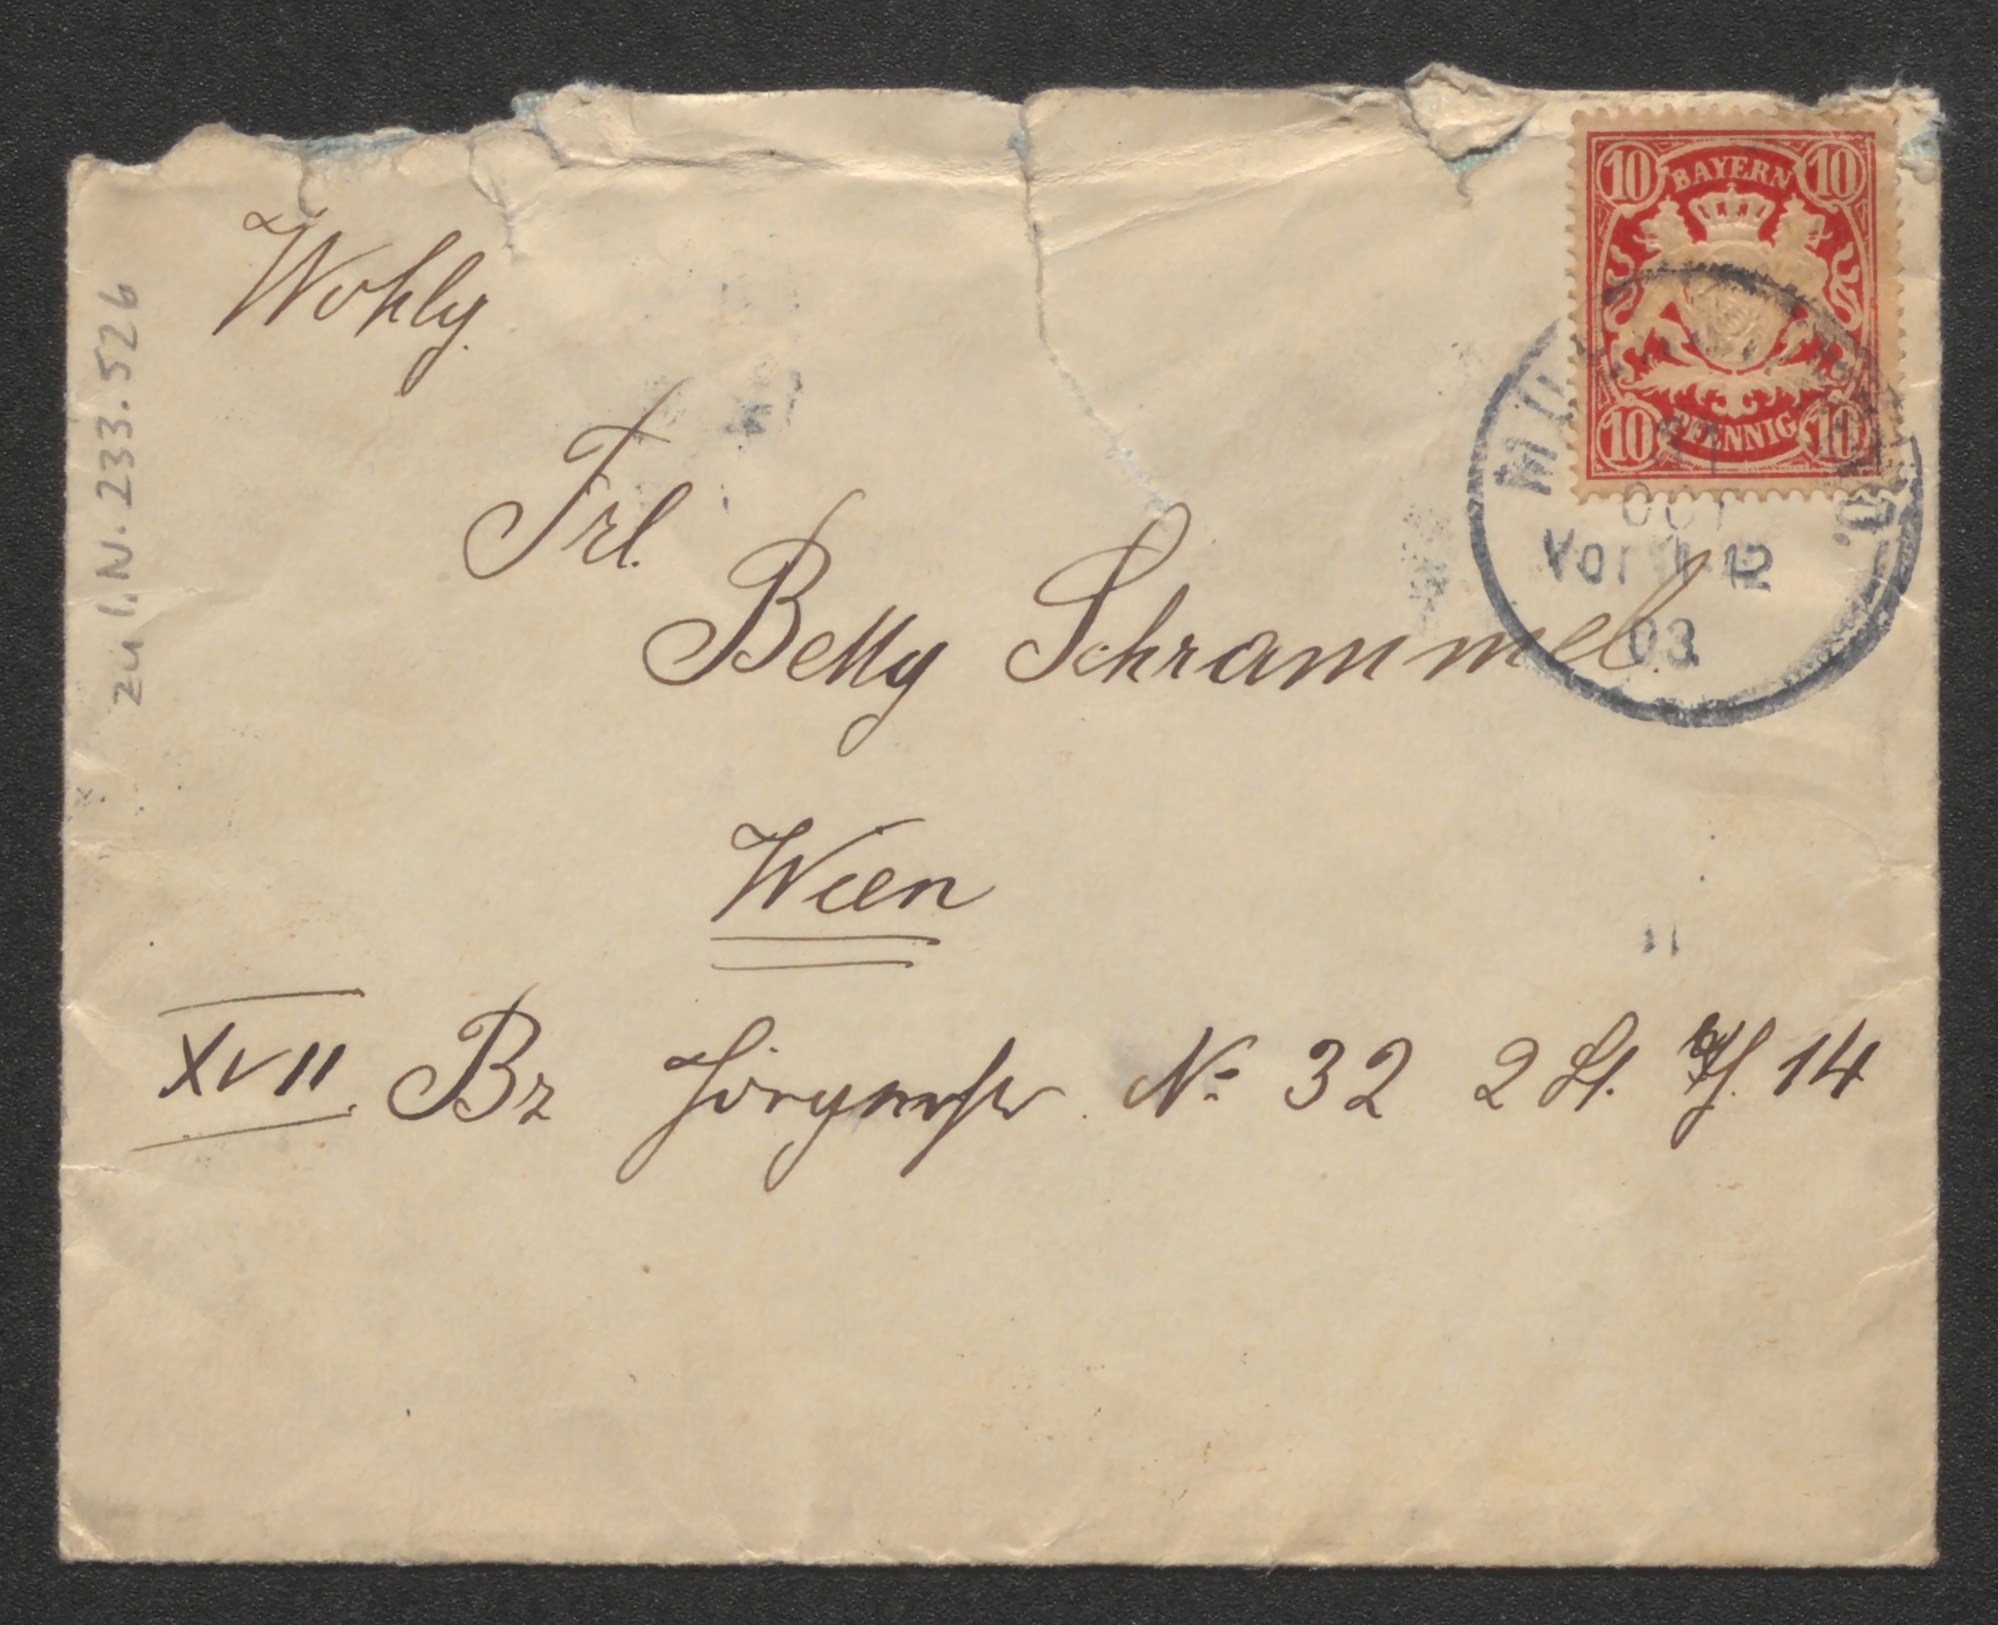 10 BAYERN 10
10 PFENNIG 10
OCT
Vor 11-12
03
Wohlg.
Frl.
Betty Schrammel.
Wien
XVII. Bz Jörgerstr. No 32 2 St. Th. 14
zu I.N. 233.526